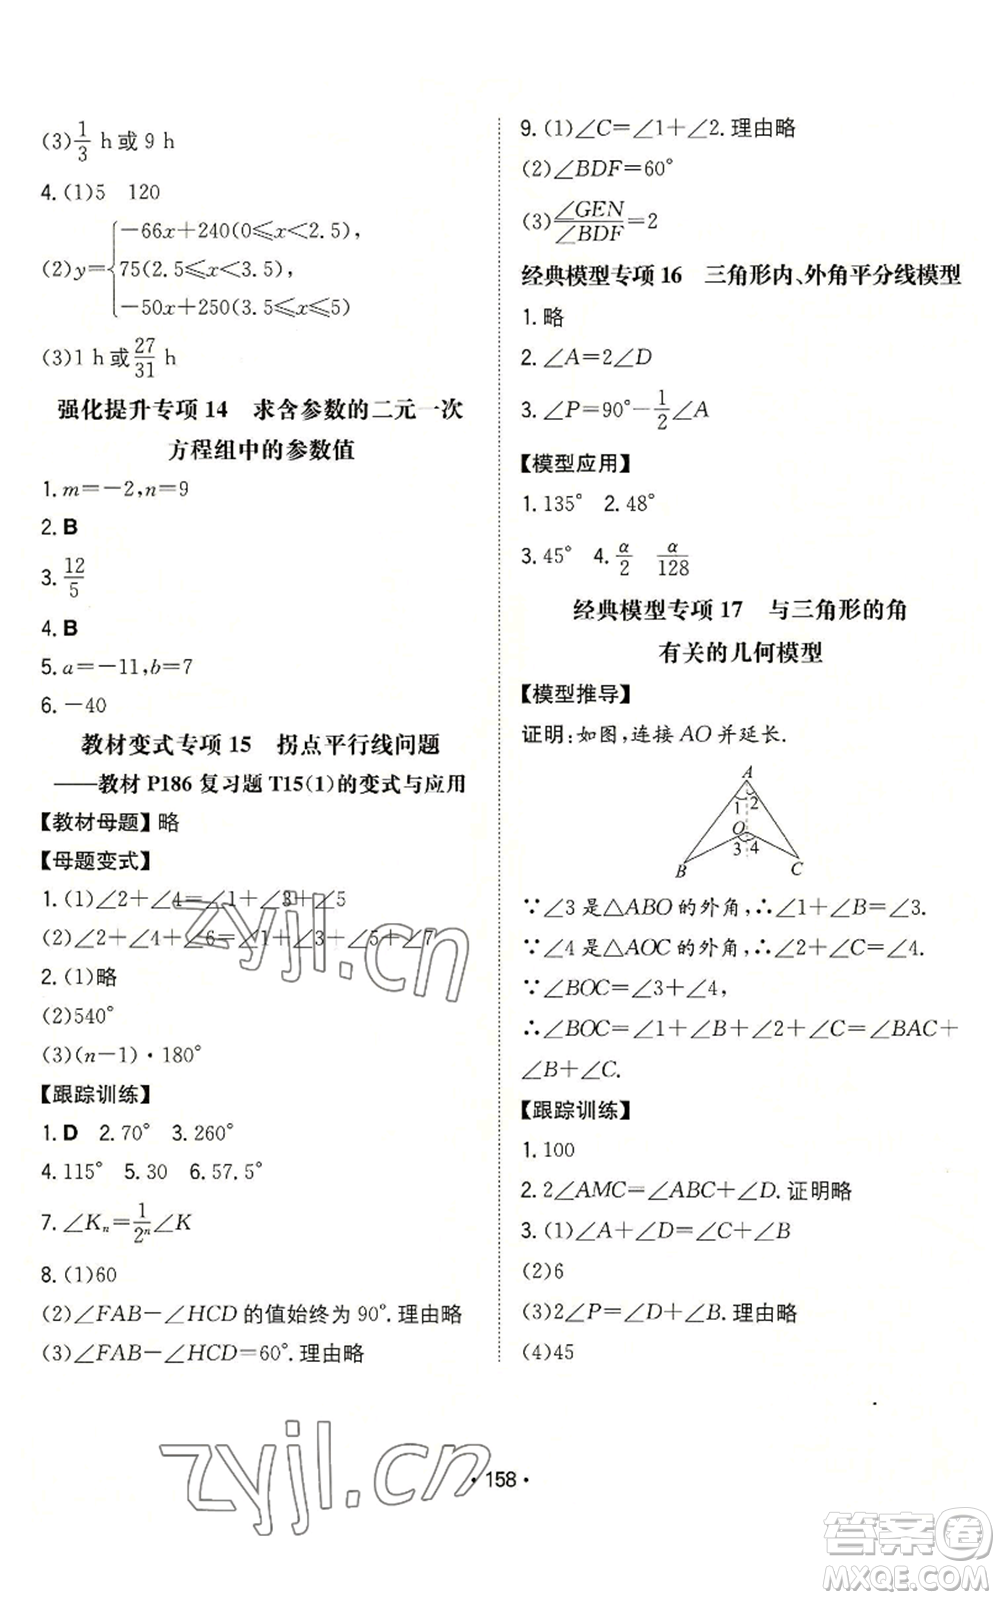 (3)1/3 h或 9 h
4.(1)5 120
(2)y={−66x+240(0⩽x<2.5),
75(2.5⩽x<3.5),
−50x+250(3.5⩽x⩽5)
(3)1 h或27/31 h
强化提升专项 14 求含参数的二元一次
方程组中的参数值
1.m=−2,n=9
2.B
3.12/5
4.B
5.a=−11,b=7
6.−40
教材变式专项 15 拐点平行线问题
——教材 P186 复习题 T15(1)的变式与应用
【教材母题】略
【母题变式】
1.(1)∠2+∠4=∠1+∠3+∠5
(2)∠2+∠4+∠6=∠1+∠3+∠5+∠7
2.(1)略
(2)540°
(3)(n−1)·180°
【跟踪训练】
1.D 2.70° 3.260°
4.115° 5.30 6.57.5°
7.∠Kₙ=1/2ⁿ∠K
8.(1)60
(2)∠FAB−∠HCD 的值始终为 90°.理由略
(3)∠FAB−∠HCD=60°.理由略
9.(1)∠C=∠1+∠2.理由略
(2)∠BDF=60°
(3)∠GEN/∠BDF=2
经典模型专项 16 三角形内、外角平分线模型
1.略
2.∠A=2∠D
3.∠P=90°−1/2∠A
【模型应用】
1.135° 2.48°
3.45° 4.α/2 α/128
经典模型专项 17 与三角形的角
有关的几何模型
【模型推导】
证明:如图,连接 AO 并延长.
A
1 2
O
3 4
B C
∵∠3 是△ABO 的外角,∴∠1+∠B=∠3.
∵∠4 是△AOC 的外角,∴∠2+∠C=∠4.
∵∠BOC=∠3+∠4,
∴∠BOC=∠1+∠B+∠2+∠C=∠BAC+
∠B+∠C.
【跟踪训练】
1.100
2.2∠AMC=∠ABC+∠D.证明略
3.(1)∠A+∠D=∠B+∠C
(2)6
(3)2∠P=∠D+∠B.理由略
(4)45
·158·
zyjl.cn
zyjl.cn
答案圈
MXQE.COM